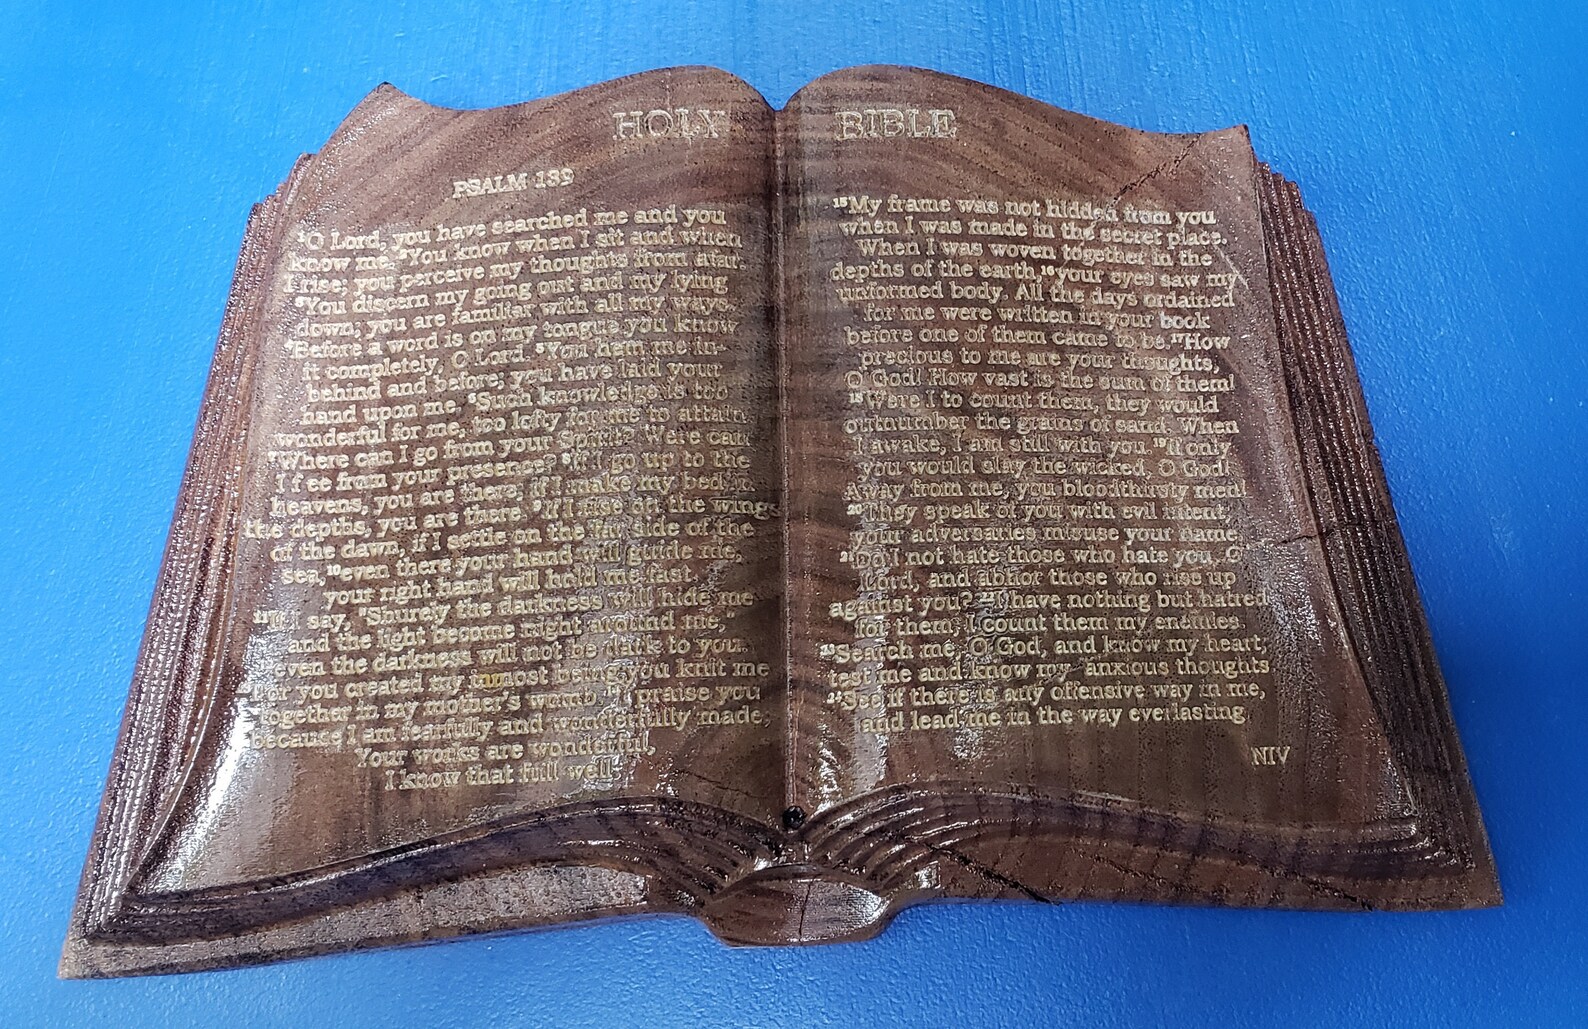 HOLY BIBLE
PSALM 139
¹O Lord, you have searched me and you
know me. ²You know when I sit and when
I rise; you perceive my thoughts from afar.
³You discern my going out and my lying
down; you are familiar with all my ways.
⁴Before a word is on my tongue you know
it completely, O Lord. ⁵You hem me in-
behind and before; you have laid your
hand upon me. ⁶Such knowledge is too
wonderful for me, too lofty for me to attain.
⁷Where can I go from your Spirit? Were can
I f ee from your presence? ⁸If I go up to the
heavens, you are there; if I make my bed in
the depths, you are there. ⁹If I rise on the wings
of the dawn, if I settle on the far side of the
sea, ¹⁰even there your hand will guide me,
your right hand will hold me fast.
¹¹If I say, "Shurely the darkness will hide me
and the light become night around me,"
even the darkness will not be dark to you.
For you created my inmost being; you knit me
together in my mother's womb. I praise you
because I am fearfully and wonderfully made;
Your works are wonderful,
I know that full well
¹⁵My frame was not hidden from you
when I was made in the secret place.
When I was woven together in the
depths of the earth, ¹⁶your eyes saw my
unformed body. All the days ordained
for me were written in your book
before one of them came to be. ¹⁷How
precious to me are your thoughts,
O God! How vast is the sum of them!
¹⁸Were I to count them, they would
outnumber the grains of sand. When
I awake, I am still with you. ¹⁹If only
you would slay the wicked, O God!
Away from me, you bloodthirsty men!
²⁰They speak of you with evil intent;
your adversaries misuse your name.
²¹Do I not hate those who hate you, O
Lord, and abhor those who rise up
against you? ²²I have nothing but hatred
for them; I count them my enemies.
²³Search me, O God, and know my heart;
test me and know my anxious thoughts
²⁴See if there is any offensive way in me,
and lead me in the way everlasting
NIV